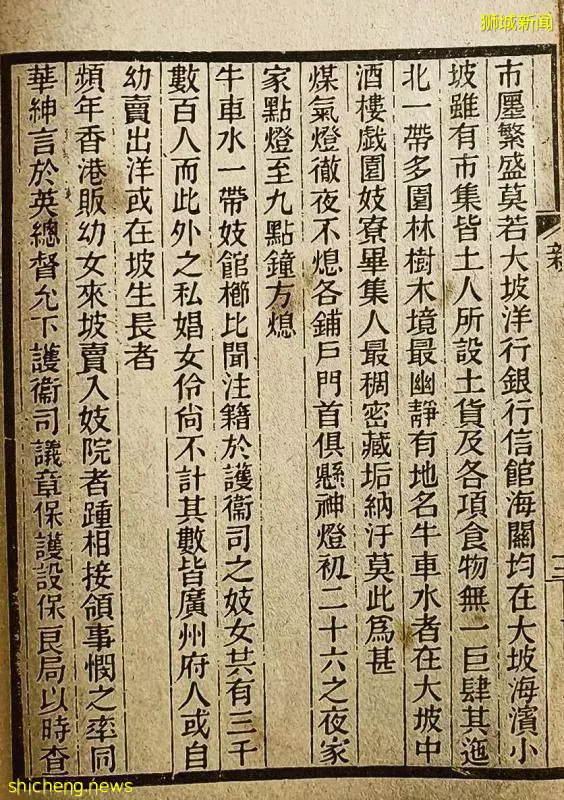 狮城新闻
市廛繁盛莫若大坡洋行銀行信館海關均在大坡海濱小
坡雖有市集皆土人所設土貨及各項食物無一巨肆其迤
北一帶多園林樹木境最幽靜有地名牛車水者在大坡中
酒樓戲園妓寮畢集人最稠密藏垢納汙莫此爲甚
煤氣燈徹夜不熄各鋪戶門首俱懸神燈初二十六之夜家
家點燈至九點鐘方熄
牛車水一帶妓館櫛比聞注籍於護衞司之妓女共有三千
數百人而此外之私娼女伶尙不計其數皆廣州府人或自
幼賣出洋或在坡生長者
頻年香港販幼女來坡賣入妓院者踵相接領事憫之率同
華紳言於英總督允下護衞司議章保護設保良局以時查
shicheng.news